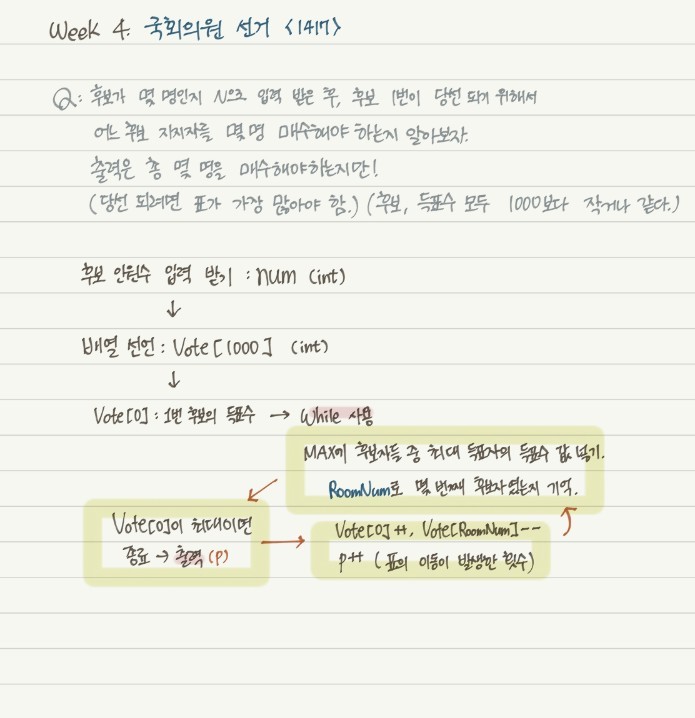 Week 4. 국회의원 선거 <1417>
Q: 후보가 몇 명인지 N으로 입력 받은 후, 후보 1번이 당선 되기 위해서
어느 후보 지지자를 몇 명 매수해야 하는지 알아보자.
출력은 총 몇 명을 매수해야하는지만!
(당선 되려면 표가 가장 많아야 함.) (후보, 득표수 모두 1000보다 작거나 같다.)
후보 인원수 입력 받기 : num (int)
↓
배열 선언 : Vote[1000] (int)
↓
Vote[0] : 1번 후보의 득표수 → While 사용
MAX에 후보자들 중 최대 득표자의 득표수 값 넣기.
RoomNum로 몇 번째 후보자였는지 기억.
Vote[0]이 최대이면
종료 → 출력 (P)
→
Vote[0]++, Vote[RoomNum]--
P++ ( 표의 이동이 발생한 횟수)